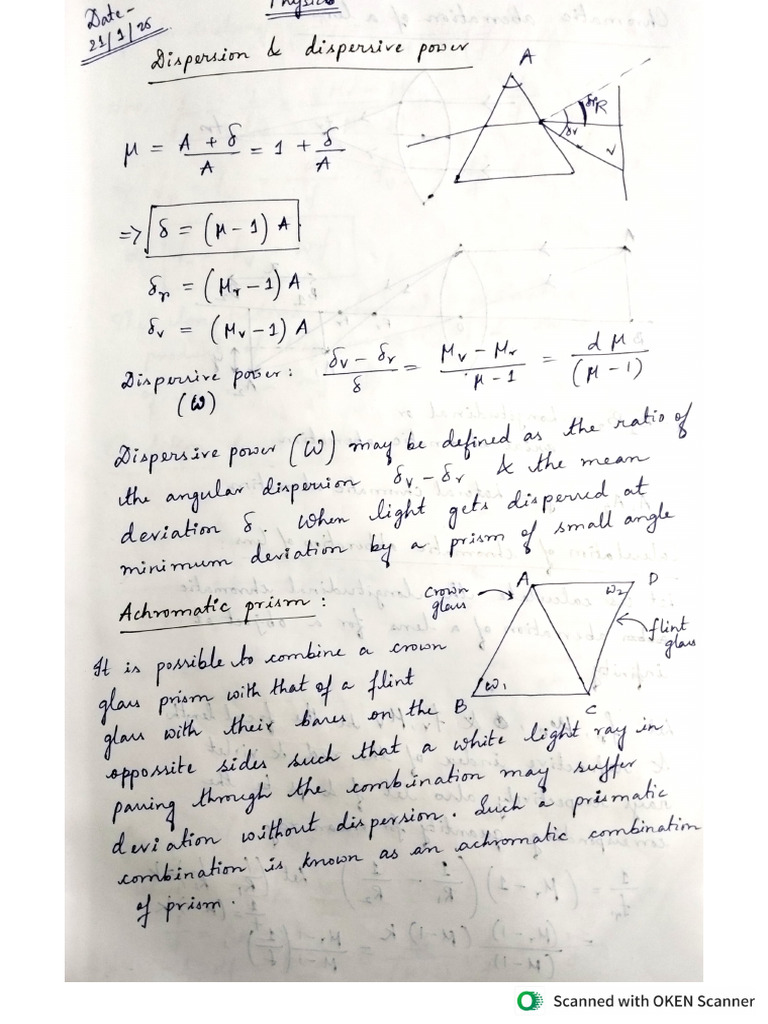 Physics
Date-
21/1/25
Dispersion & dispersive power
A
δr R
δv
V
μ = A + δ / A = 1 + δ / A
=> δ = (μ - 1) A
δr = (μr - 1) A
δv = (μv - 1) A
Dispersive power: δv - δr / δ = μv - μr / μ - 1 = dμ / (μ - 1)
(ω)
Dispersive power (ω) may be defined as the ratio of
the angular dispersion δv - δr & the mean
deviation δ. When light gets dispersed at
minimum deviation by a prism of small angle
Achromatic prism:
Crown glass
A
D
ω2
flint glass
B
ω1
C
It is possible to combine a crown
glass prism with that of a flint
glass with their bases on the
oppossite sides such that a white light ray in
passing through the combination may suffer
deviation without dispersion. Such a prismatic
combination is known as an achromatic combination
of prism.
Scanned with OKEN Scanner